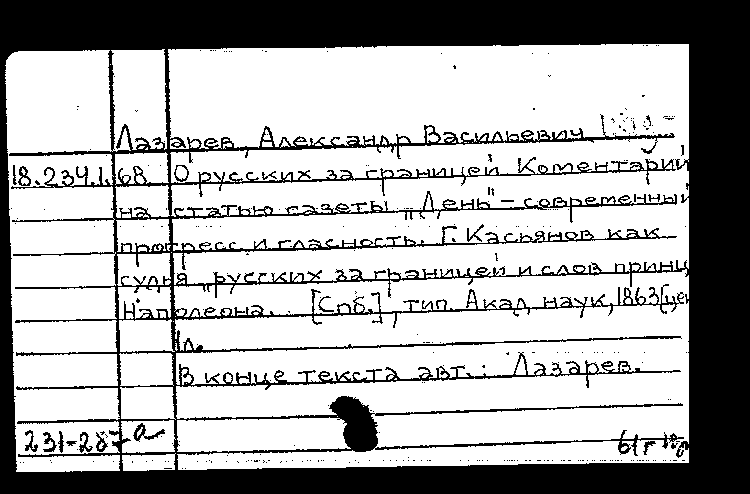 Лазарев, Александр Васильевич
18.234.1.68 О русских за границей Коментарий
на статью газеты „День" – современный
прогресс и гласность. Г. Касьянов как
судья „русских за границей и слов принц
Наполеона. [Спб.], тип. Акад. наук, 1863 [цен
1л.
В конце текста авт.: Лазарев.
231-287а 61г